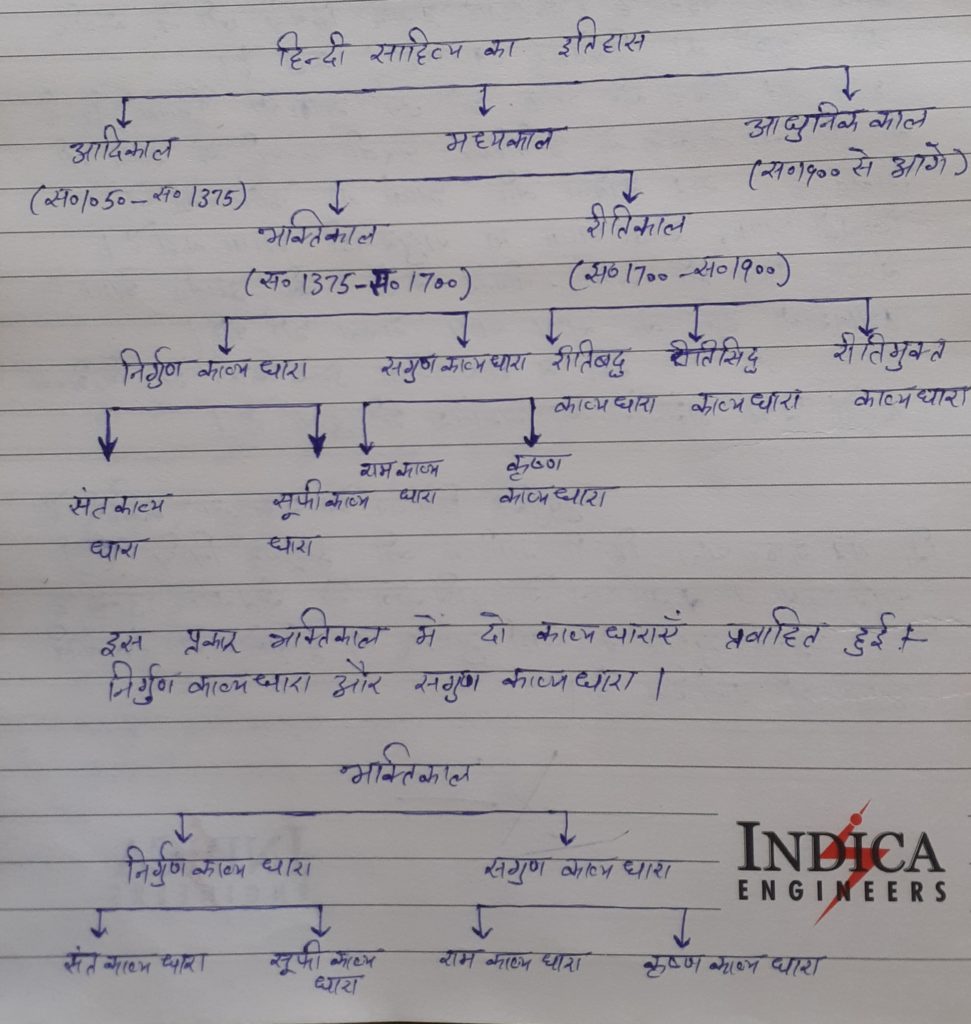 हिन्दी साहित्य का इतिहास
आदिकाल
मध्यकाल
आधुनिक काल
(स०1050-स० 1375)
(स०1900 से आगे)
भक्तिकाल
रीतिकाल
(स० 1375-स० 1700)
(स० 1700 -स०1900)
निर्गुण काव्य धारा
सगुण काव्य धारा
रीतिबद्ध
रीतिसिद्ध
रीतिमुक्त
काव्य धारा
काव्य धारा
काव्य धारा
संत काव्य
धारा
सूफी काव्य
धारा
राम काव्य
धारा
कृष्ण
काव्य धारा
इस प्रकार भक्तिकाल में दो काव्य धाराएँ प्रवाहित हुई :-
निर्गुण काव्य धारा और सगुण काव्य धारा |
भक्तिकाल
निर्गुण काव्य धारा
सगुण काव्य धारा
संत काव्य धारा
सूफी काव्य
धारा
राम काव्य धारा
कृष्ण काव्य धारा
INDICA
ENGINEERS